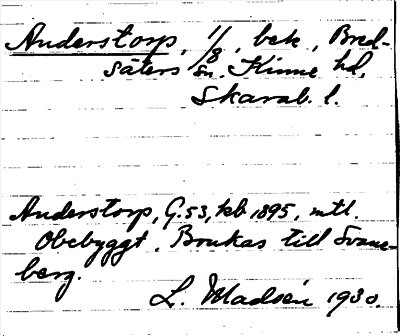 Anderstorp, 1/8, bek., Bred-
säters sn. Kinne hd,
Skarab. l.
Anderstorp, G. 53, kb 1895, mtl.
Obebyggt. Brukas till Svane-
berg.
L. Madsén 1930.